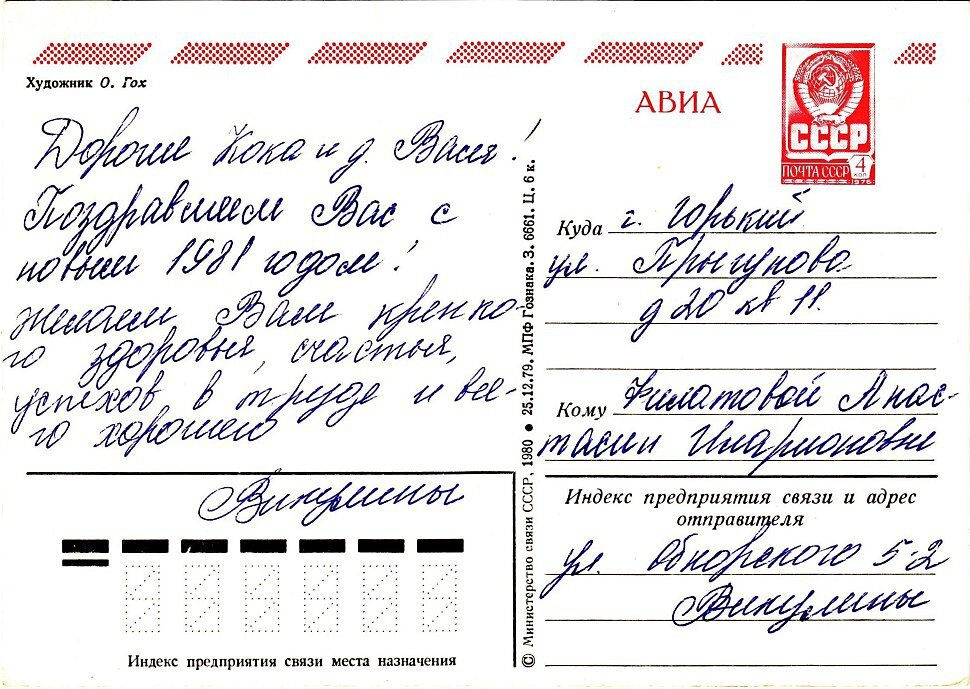 Художник О. Гох
АВИА
СССР
ПОЧТА СССР 4 КОП
1976
Дорогие Кока и д. Вася!
Поздравляем Вас с
новым 1981 годом!
желаем Вам крепко-
го здоровья, счастья,
успехов в труде и все-
го хорошего
Викулины
Индекс предприятия связи места назначения
© Министерство связи СССР, 1980 ● 25.12.79. МПФ Гознака. З. 6661. Ц. 6 к.
Куда г. Горький
ул. Прыгунова
д 20 кв 11.
Кому Филатовой Анас-
тасии Иларионовне
Индекс предприятия связи и адрес
отправителя
ул. Обнорского 5-2
Викулины